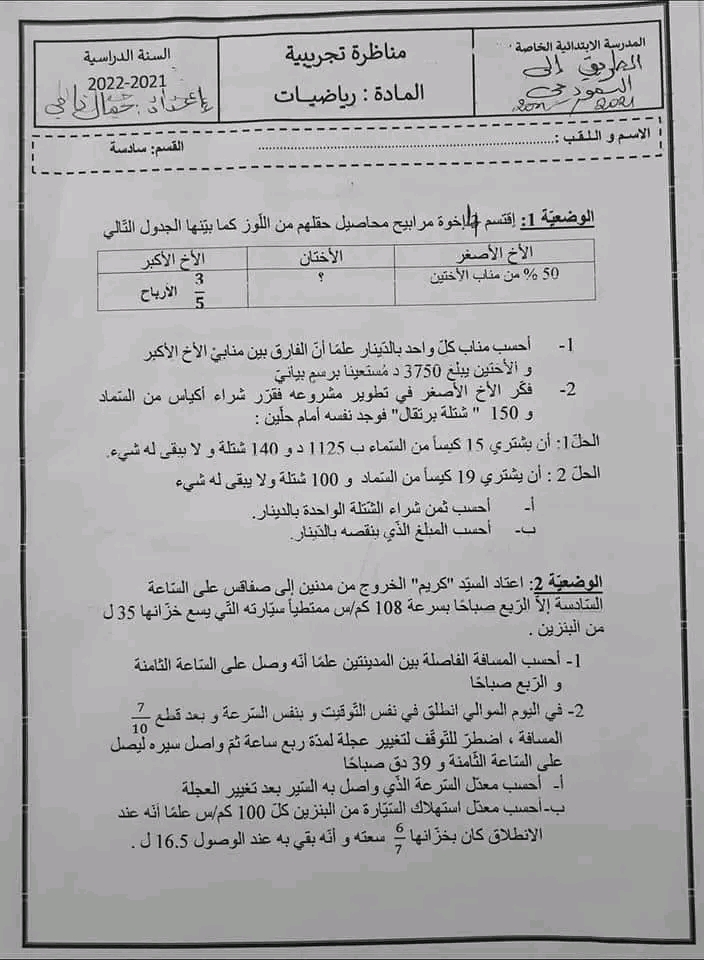 المدرسة الابتدائية الخاصة
الطريق إلى
النموذجي
2021
مناظرة تجريبية
المادة : رياضيات
السنة الدراسية
2022-2021
إعداد :
الاسم و اللقب : ........................................
القسم: سادسة
الوضعيّة 1: إقتسم إخوة مرابيح محاصيل حقلهم من اللّوز كما بيّنها الجدول التّالي
الأخ الأصغر الأختان الأخ الأكبر
50 % من مناب الأختين ؟ 3/5 الأرباح
1- أحسب مناب كلّ واحد بالدّينار علمًا أنّ الفارق بين منابيْ الأخ الأكبر
و الأختين يبلغ 3750 د مُستعينا برسم بيانيّ
2- فكّر الأخ الأصغر في تطوير مشروعه فقرّر شراء أكياس من السّماد
و 150 " شتلة برتقال" فوجد نفسه أمام حلّين :
الحلّ1: أن يشتري 15 كيساً من السّماء ب 1125 د و 140 شتلة و لا يبقى له شيء.
الحلّ 2 : أن يشتري 19 كيساً من السّماد و 100 شتلة ولا يبقى له شيء
أ- أحسب ثمن شراء الشّتلة الواحدة بالدينار.
ب- أحسب المبلغ الذّي ينقصه بالدّينار.
الوضعيّة 2: اعتاد السيّد "كريم" الخروج من مدنين إلى صفاقس على السّاعة
السّادسة إلاّ الرّبع صباحًا بسرعة 108 كم/س ممتطياً سيّارته التّي يسع خزّانها 35 ل
من البنزين .
1- أحسب المسافة الفاصلة بين المدينتين علمًا أنّه وصل على السّاعة الثّامنة
و الرّبع صباحًا
2- في اليوم الموالي انطلق في نفس التّوقيت و بنفس السّرعة و بعد قطع 7/10
المسافة ، اضطرّ للتّوقّف لتغيير عجلة لمدّة ربع ساعة ثمّ واصل سيره ليصل
على السّاعة الثّامنة و 39 دق صباحًا
أ- أحسب معدّل السّرعة الذّي واصل به السّير بعد تغيير العجلة
ب- أحسب معدّل استهلاك السّيّارة من البنزين كلّ 100 كم/س علمًا أنّه عند
الانطلاق كان بخزّانها 6/7 سعته و أنّه بقي به عند الوصول 16.5 ل .